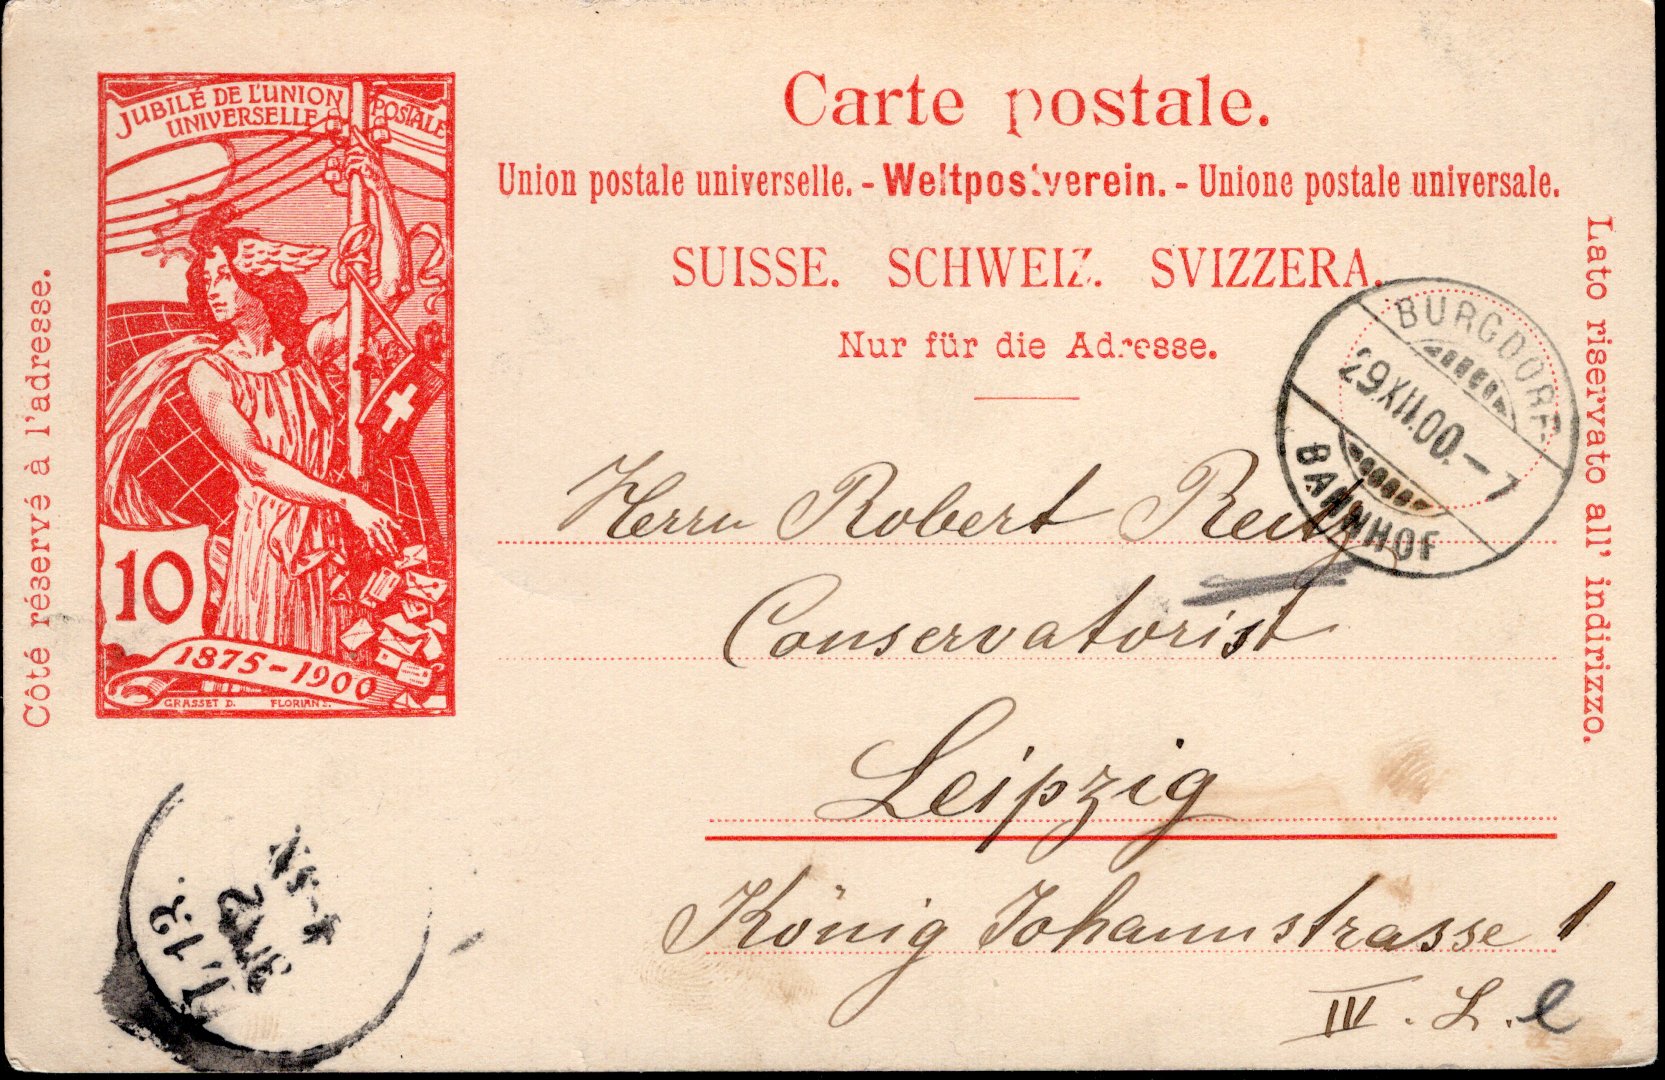 JUBILÉ DE L'UNION POSTALE
UNIVERSELLE
10
1875-1900
GRASSET D. FLORIAN S.
Carte postale.
Union postale universelle. - Weltpostverein. - Unione postale universale.
SUISSE. SCHWEIZ. SVIZZERA.
Nur für die Adresse.
Côté réservé à l'adresse.
Lato riservato all' indirizzo.
BURGDORF
29.XII.00.-7
BAHNHOF
Herrn Robert Reitz
Conservatorist
Leipzig
König Johannstrasse 1
IV. L. l
12